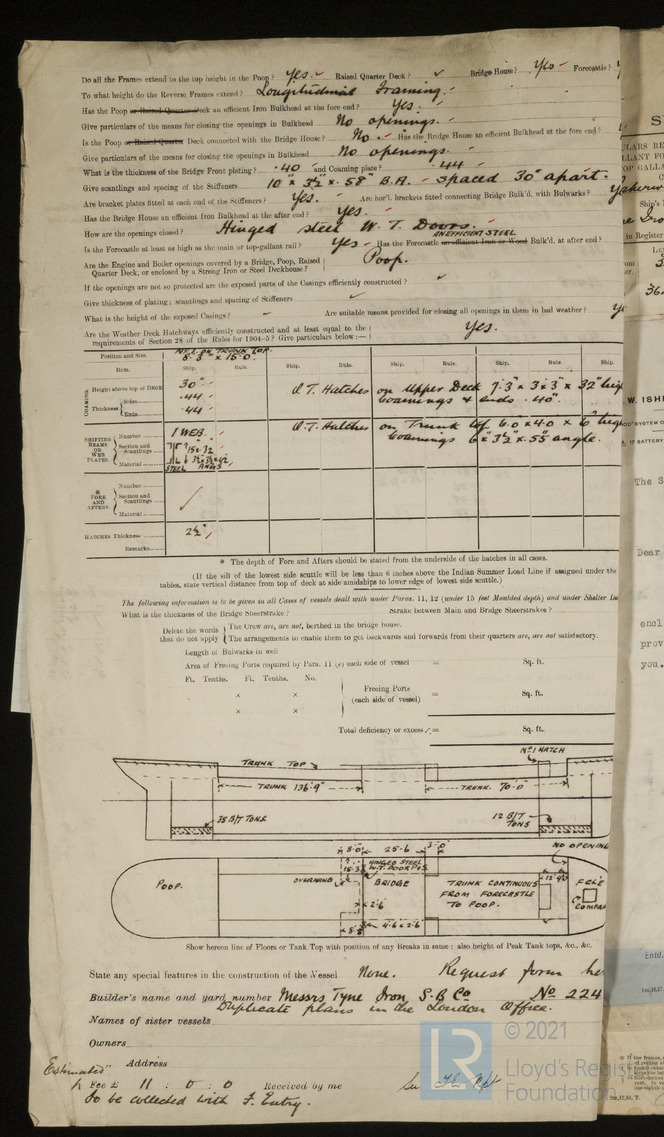 Do all the Frames extend to the top height in the Poop? Yes. Raised Quarter Deck? Bridge House? Yes Forecastle?
To what height do the Reverse Frames extend? Longitudinal Framing.
Has the Poop or Raised Quarter Deck an efficient Iron Bulkhead at the fore end? Yes.
Give particulars of the means for closing the openings in Bulkhead No openings.
Is the Poop or Raised Quarter Deck connected with the Bridge House? No. Has the Bridge House an efficient Bulkhead at the fore end?
Give particulars of the means for closing the openings in Bulkhead No openings.
What is the thickness of the Bridge Front plating? .40 and Coaming plate? .44
Give scantlings and spacing of the Stiffeners 10" x 3½" x .58" B.A. spaced 30" apart.
Are bracket plates fitted at each end of the Stiffeners? Yes. Are hor'l. brackets fitted connecting Bridge Bulk'd. with Bulwarks?
Has the Bridge House an efficient Iron Bulkhead at the after end? Yes.
How are the openings closed? Hinged steel W. T. Doors.
AN EFFICIENT STEEL
Is the Forecastle at least as high as the main or top-gallant rail? Yes Has the Forecastle an efficient Iron or Wood Bulk'd. at after end?
Are the Engine and Boiler openings covered by a Bridge, Poop, Raised Quarter Deck, or enclosed by a Strong Iron or Steel Deckhouse? Poop.
If the openings are not so protected are the exposed parts of the Casings efficiently constructed?
Give thickness of plating; scantlings and spacing of Stiffeners
What is the height of the exposed Casings? Are suitable means provided for closing all openings in them in bad weather?
Are the Weather Deck Hatchways efficiently constructed and at least equal to the requirements of Section 28 of the Rules for 1904-5? Give particulars below:— Yes.
Position and Size. No 1 on TRUNK TOP.
8'.3" x 15'.0"
Item. Ship. Rule. Ship. Rule. Ship. Rule. Ship.
COAMING Height above top of DECK 30" O.T. Hatches on Upper Deck 7'.3" x 3' x 3' x 32" high
Thickness Sides .44 Coamings & ends .40".
Ends .44
SHIPPING BEAMS OR WEB PLATES. Number 1 WEB. O.T. Hatches on Trunk top 6'.0 x 4'.0 x 6" high
Section and Scantlings 15 x .32 Coamings 6" x 3½" x .55" angle.
Material STEEL ANGS
* FORE AND AFTERS. Number
Section and Scantlings
Material
HATCHES Thickness 2½"
Remarks
* The depth of Fore and Afters should be stated from the underside of the hatches in all cases.
(If the sill of the lowest side scuttle will be less than 6 inches above the Indian Summer Load Line if assigned under the
tables, state vertical distance from top of deck at side amidships to lower edge of lowest side scuttle.)
The following information is to be given in all Cases of vessels dealt with under Paras. 11, 12 (under 15 feet Moulded depth) and under Shelter
What is the thickness of the Bridge Sheerstrake? Strake between Main and Bridge Sheerstrakes?
Delete the words that do not apply The Crew are, are not, berthed in the bridge house.
The arrangements to enable them to get backwards and forwards from their quarters are, are not satisfactory.
Length of Bulwarks in well
Area of Freeing Ports required by Para. 11 (e) each side of vessel = Sq. ft.
Ft. Tenths. Ft. Tenths. No.
x x Freeing Ports (each side of vessel) = Sq. ft.
x x
Total deficiency or excess = Sq. ft.
No 1 HATCH
TRUNK TOP
TRUNK 136'.9"
TRUNK. 70'.0"
35 B/T TONS
12 B/T TONS
NO OPENING
25'.6
HINGED STEEL W.T. DOOR
POOP.
OVERHANG
BRIDGE
TRUNK CONTINUOUS FROM FORECASTLE TO POOP.
2'.6
4'.6 x 2'.6
Show hereon line of Floors or Tank Top with position of any Breaks in same; also height of Peak Tank tops, &c., &c.
State any special features in the construction of the Vessel None. Request form
Builder's name and yard number Messrs Tyne Iron S.B. Co No 224
Duplicate plans in the London Office.
Names of sister vessels
Owners
Address
Estimated
Fee £ 11 : 0 : 0 Received by me
To be collected with F. Entry.
© 2021
LR
Lloyd's Register
Foundation
The S
Dear
encl
prov
you.